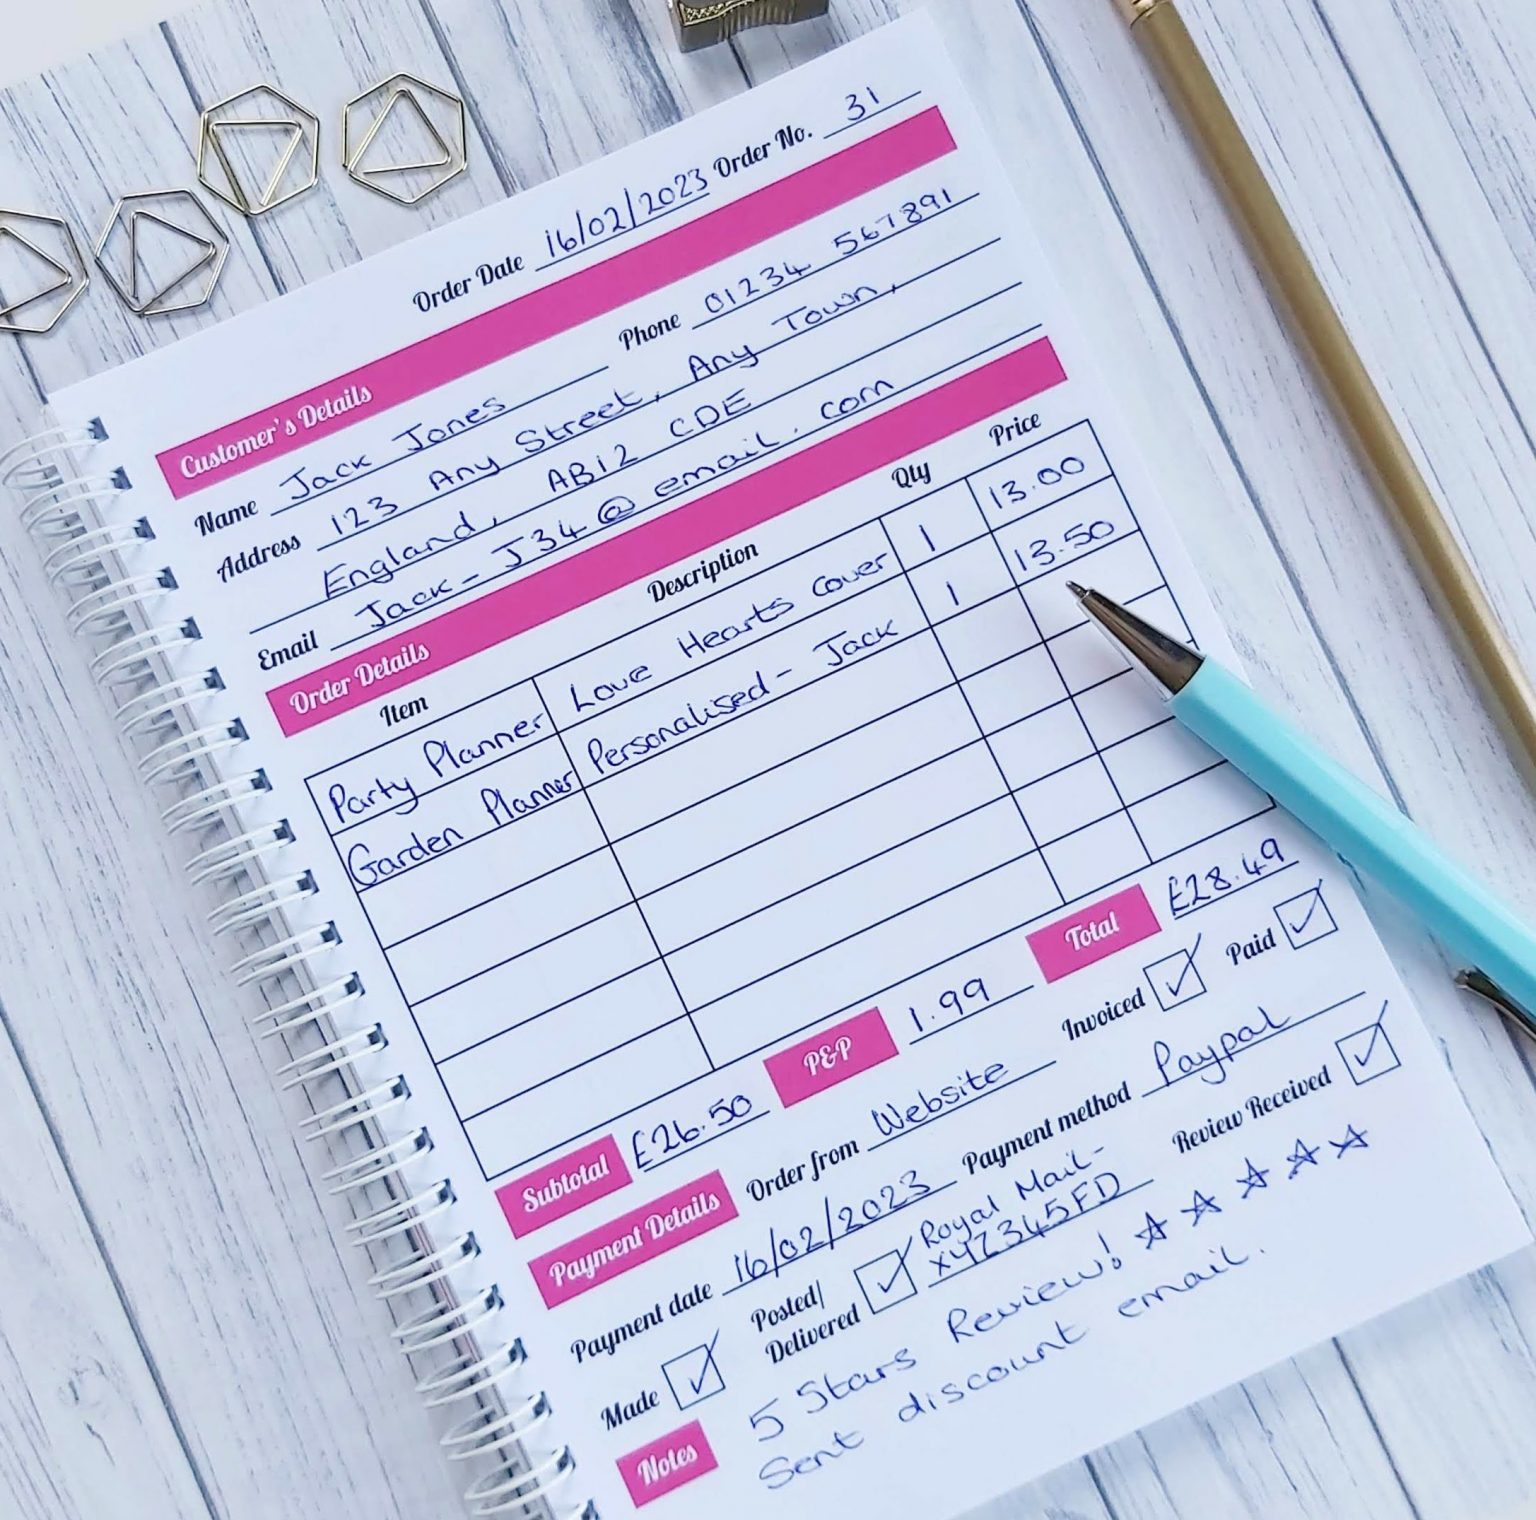 Order Date 16/02/2023 Order No. 31
Customer's Details
Name Jack Jones Phone 01234 567891
Address 123 Any Street, Any Town,
England, AB12 CDE
Email Jack-J34@email.com
Order Details
Item Description Qty Price
Party Planner Love Hearts cover 1 13.00
Garden Planner Personalised - Jack 1 13.50
Subtotal £26.50 P&P 1.99 Total £28.49
Payment Details Order from Website Invoiced Paid
Payment date 16/02/2023 Payment method Paypal
Made Posted/ Delivered Royal Mail- X4Z345FD Review Received
Notes 5 Stars Review! ☆ ☆ ☆ ☆ ☆
Sent discount email.